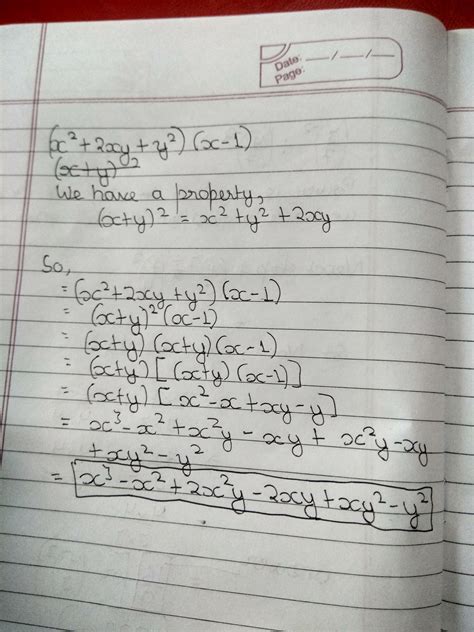 Date: __/__/__
Page:
(x²+2xy+y²)(x-1)
(x+y)²
We have a property,
(x+y)² = x²+y²+2xy
So,
=(x²+2xy+y²)(x-1)
= (x+y)²(x-1)
= (x+y)(x+y)(x-1)
= (x+y)[(x+y)(x-1)]
= (x+y)[x²-x+xy-y]
= x³-x²+x²y-xy+x²y-xy
+xy²-y²
= x³-x²+2x²y-2xy+xy²-y²